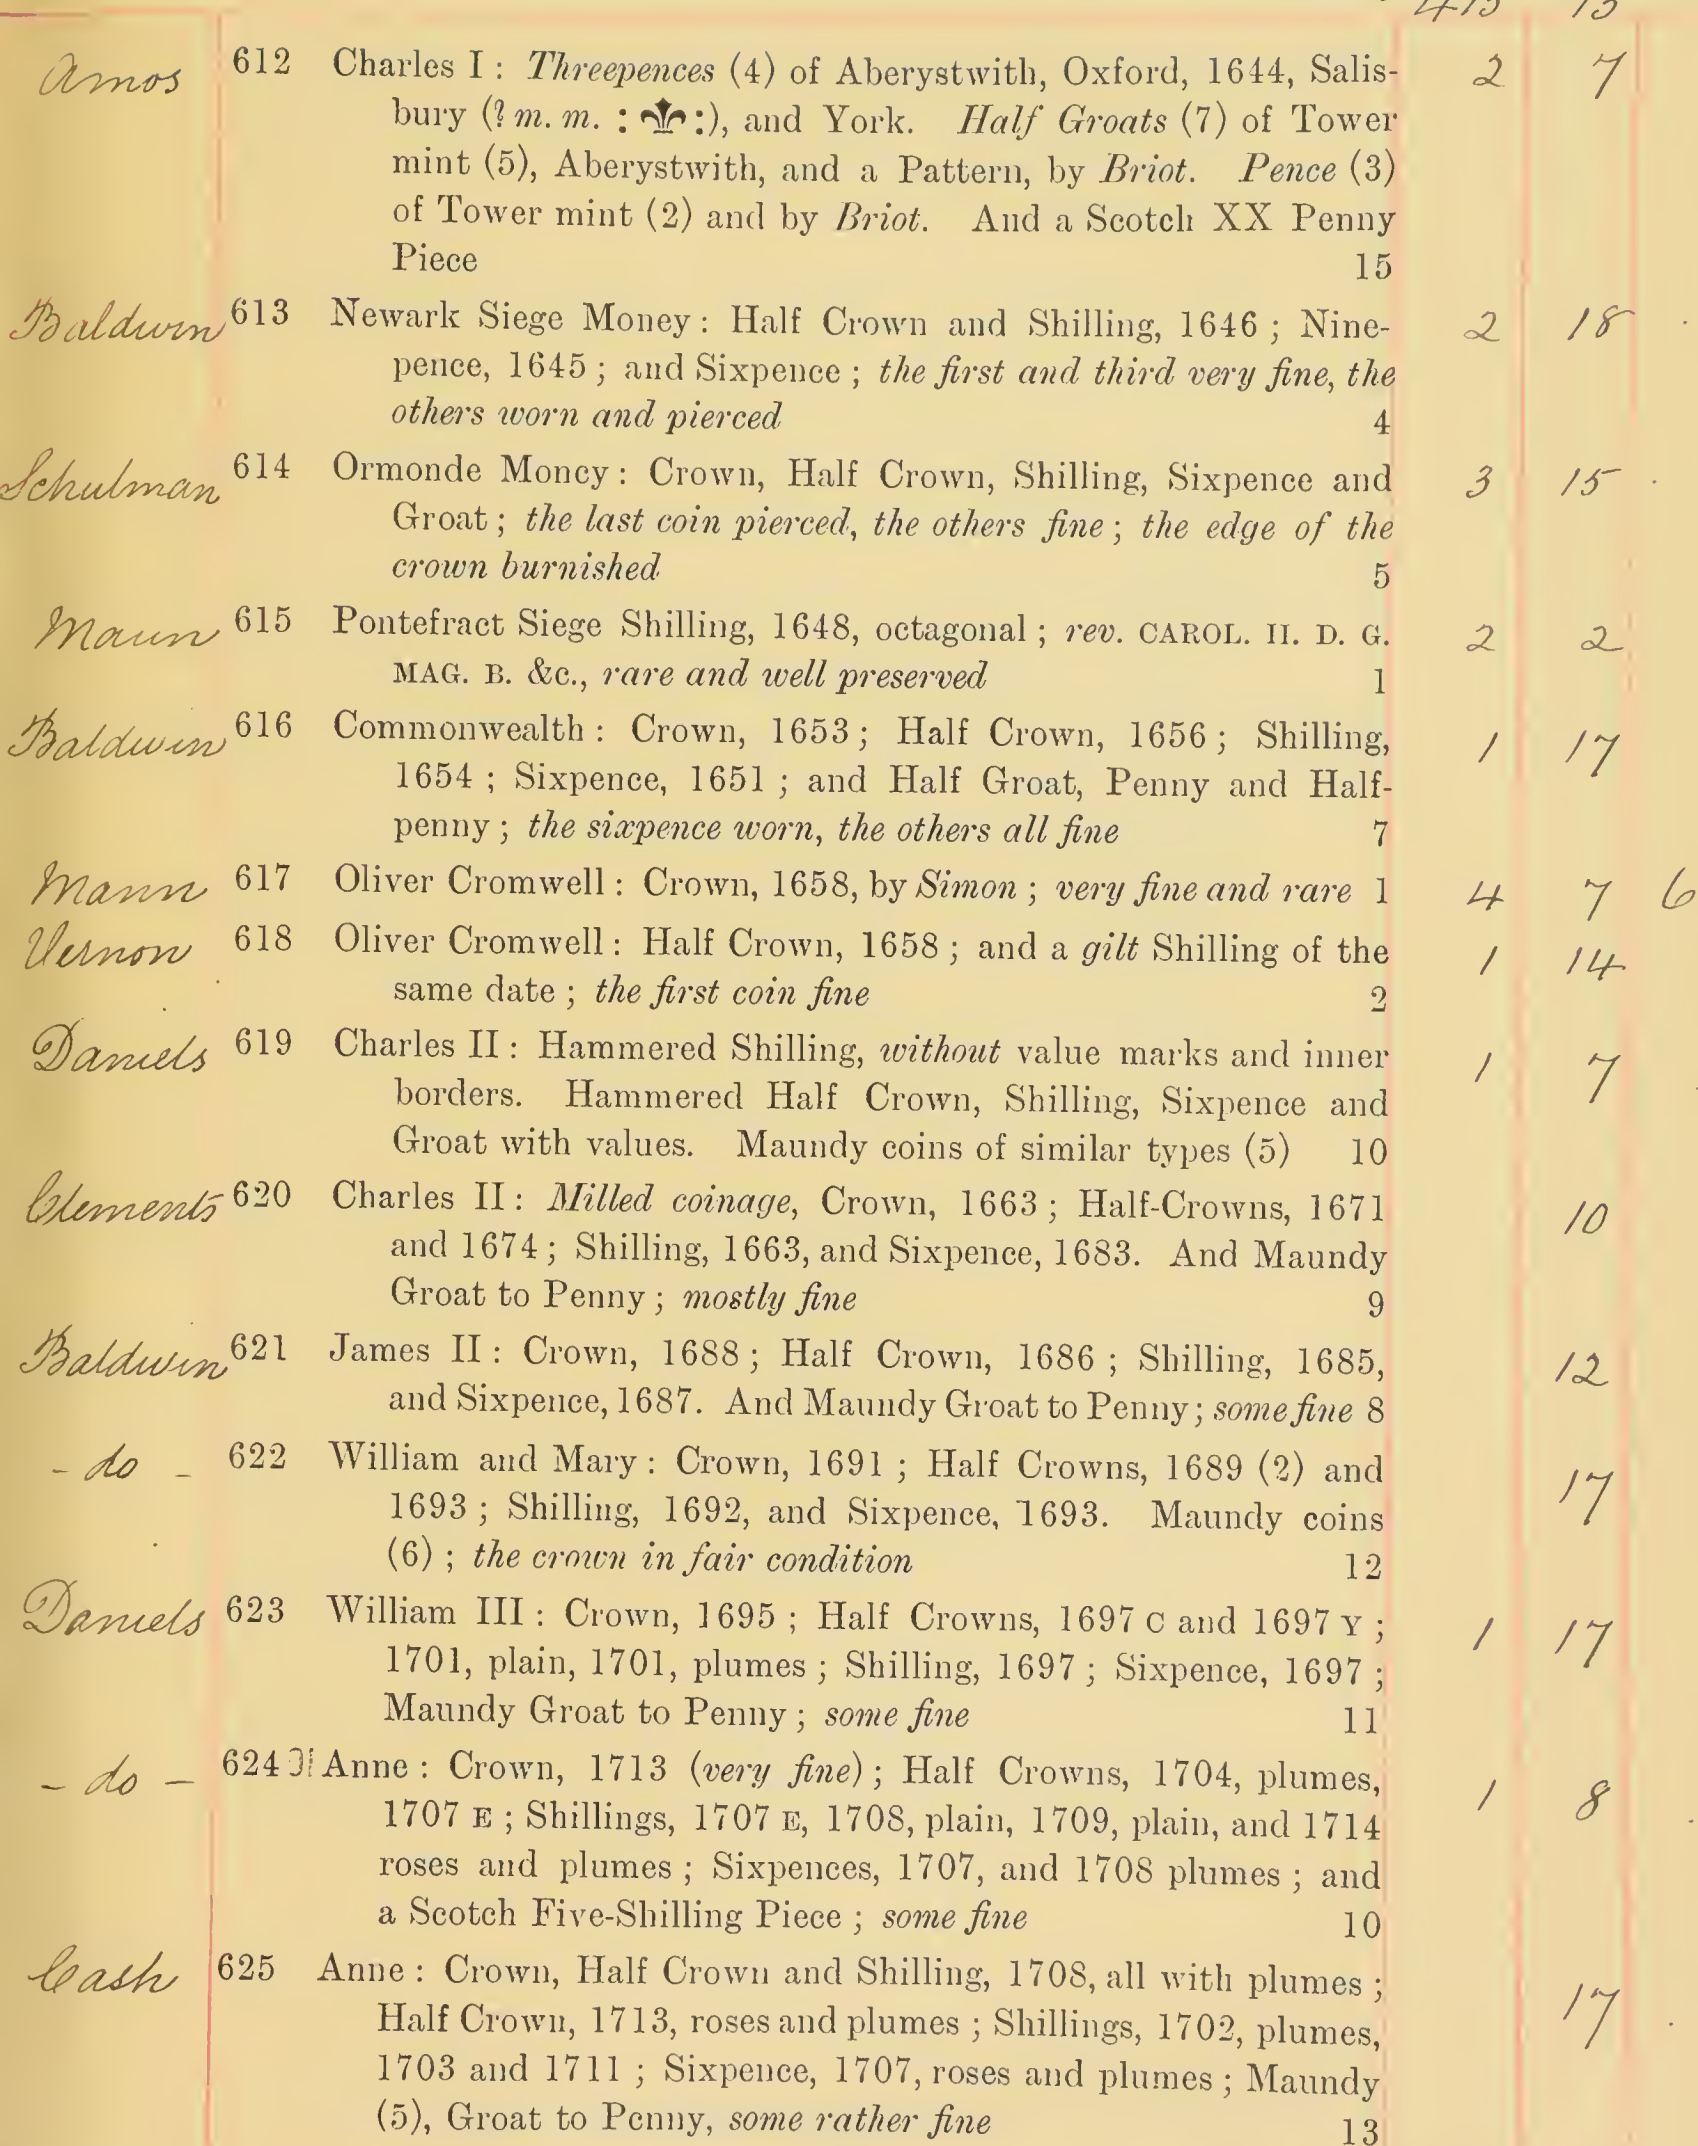 415 15
Amos 612 Charles I : Threepences (4) of Aberystwith, Oxford, 1644, Salis- 2 7
bury (? m. m. : ⚜ :), and York. Half Groats (7) of Tower
mint (5), Aberystwith, and a Pattern, by Briot. Pence (3)
of Tower mint (2) and by Briot. And a Scotch XX Penny
Piece 15
Baldwin 613 Newark Siege Money : Half Crown and Shilling, 1646 ; Nine- 2 18
pence, 1645 ; and Sixpence ; the first and third very fine, the
others worn and pierced 4
Schulman 614 Ormonde Money : Crown, Half Crown, Shilling, Sixpence and 3 15
Groat ; the last coin pierced, the others fine ; the edge of the
crown burnished 5
Mann 615 Pontefract Siege Shilling, 1648, octagonal ; rev. CAROL. II. D. G. 2 2
MAG. B. &c., rare and well preserved 1
Baldwin 616 Commonwealth : Crown, 1653 ; Half Crown, 1656 ; Shilling, 1 17
1654 ; Sixpence, 1651 ; and Half Groat, Penny and Half-
penny ; the sixpence worn, the others all fine 7
Mann 617 Oliver Cromwell : Crown, 1658, by Simon ; very fine and rare 1 4 7 6
Vernon 618 Oliver Cromwell : Half Crown, 1658 ; and a gilt Shilling of the 1 14
same date ; the first coin fine 2
Daniels 619 Charles II : Hammered Shilling, without value marks and inner 1 7
borders. Hammered Half Crown, Shilling, Sixpence and
Groat with values. Maundy coins of similar types (5) 10
Clements 620 Charles II : Milled coinage, Crown, 1663 ; Half-Crowns, 1671 10
and 1674 ; Shilling, 1663, and Sixpence, 1683. And Maundy
Groat to Penny ; mostly fine 9
Baldwin 621 James II : Crown, 1688 ; Half Crown, 1686 ; Shilling, 1685, 12
and Sixpence, 1687. And Maundy Groat to Penny ; some fine 8
- do - 622 William and Mary : Crown, 1691 ; Half Crowns, 1689 (2) and 17
1693 ; Shilling, 1692, and Sixpence, 1693. Maundy coins
(6) ; the crown in fair condition 12
Daniels 623 William III : Crown, 1695 ; Half Crowns, 1697 C and 1697 Y ; 1 17
1701, plain, 1701, plumes ; Shilling, 1697 ; Sixpence, 1697 ;
Maundy Groat to Penny ; some fine 11
- do - 624 Anne : Crown, 1713 (very fine) ; Half Crowns, 1704, plumes, 1 8
1707 E ; Shillings, 1707 E, 1708, plain, 1709, plain, and 1714
roses and plumes ; Sixpences, 1707, and 1708 plumes ; and
a Scotch Five-Shilling Piece ; some fine 10
Cash 625 Anne : Crown, Half Crown and Shilling, 1708, all with plumes ; 17
Half Crown, 1713, roses and plumes ; Shillings, 1702, plumes,
1703 and 1711 ; Sixpence, 1707, roses and plumes ; Maundy
(5), Groat to Penny, some rather fine 13